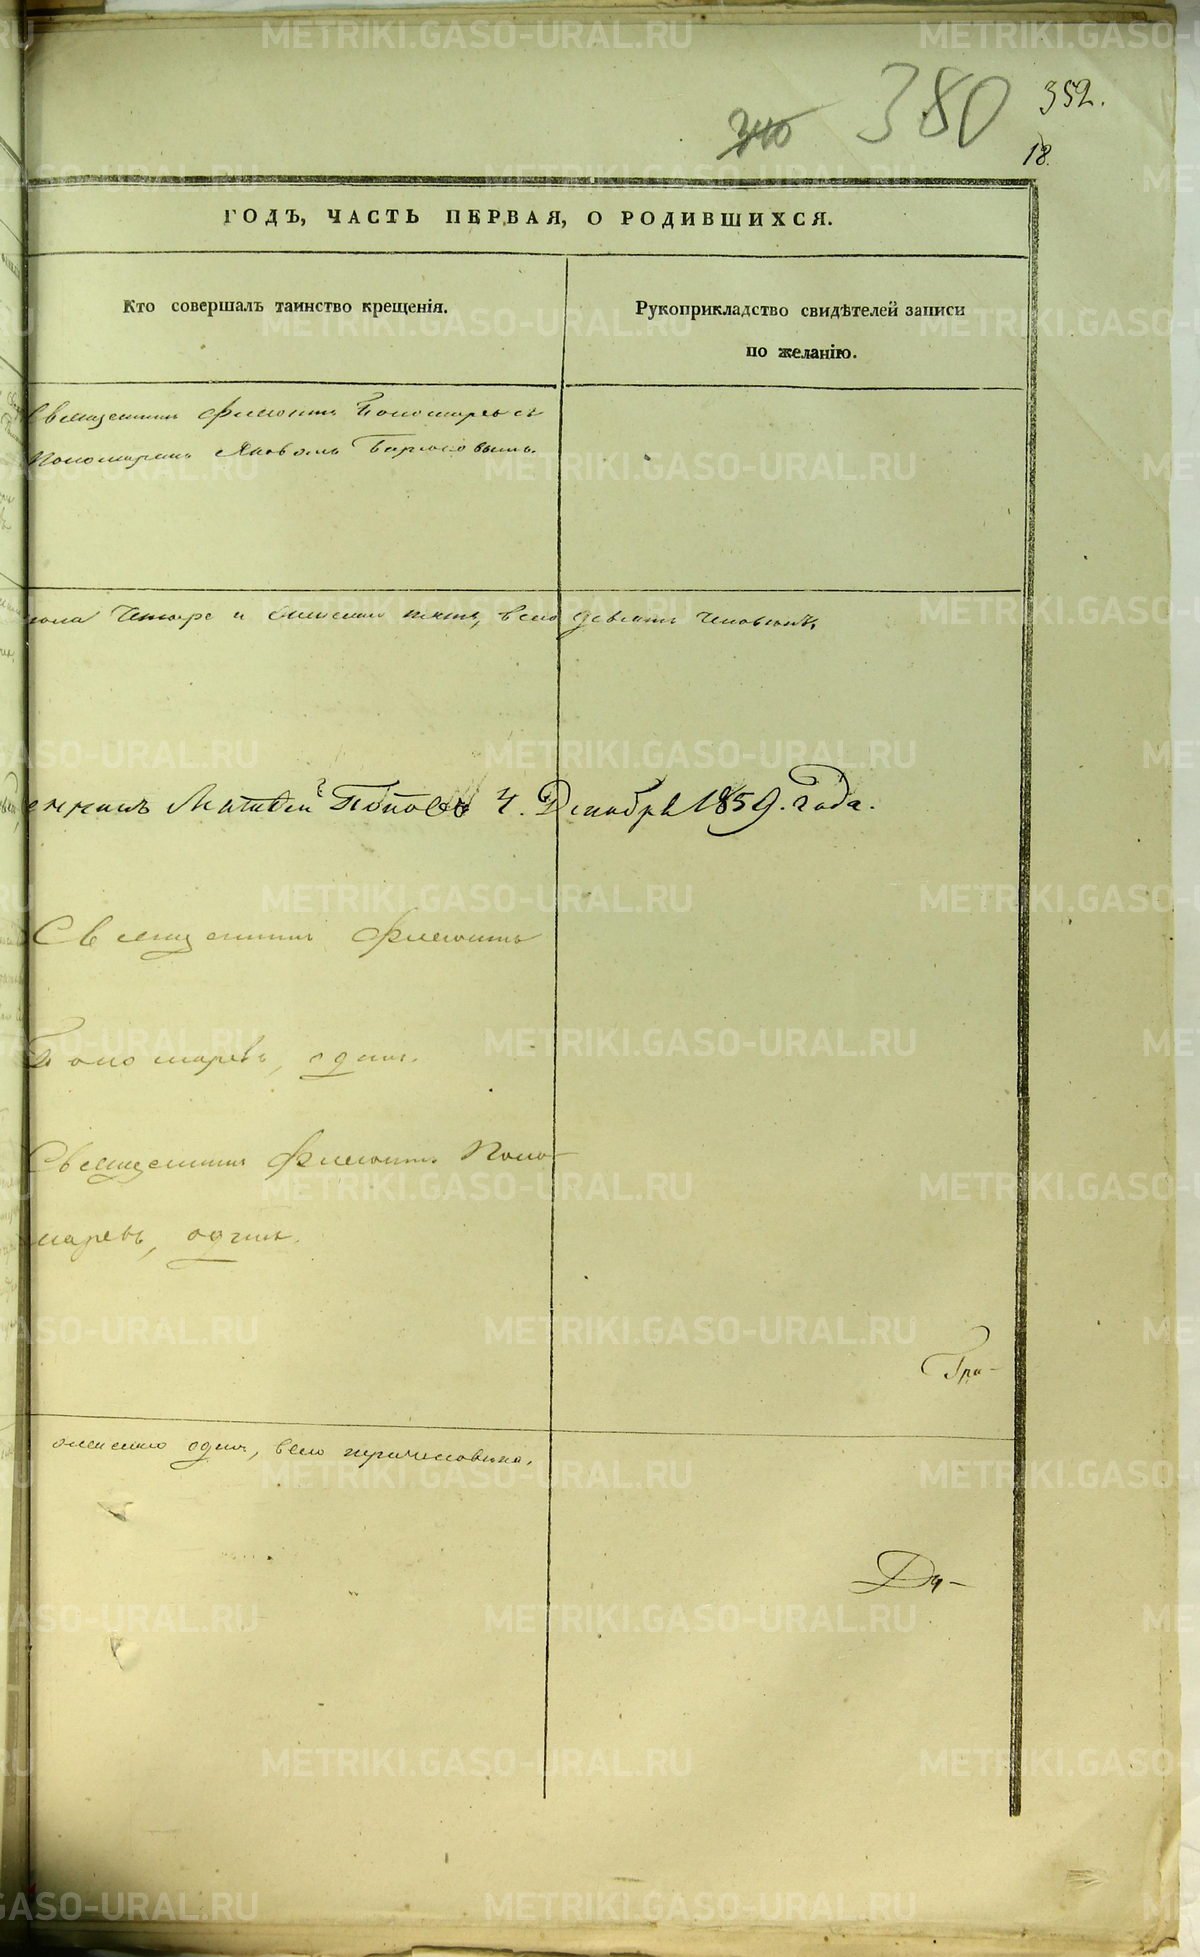 352.
380
340
18.
ГОДЪ, ЧАСТЬ ПЕРВАЯ, О РОДИВШИХСЯ.
Кто совершалъ таинство крещенія.
Рукоприкладство свидѣтелей записи
по желанію.
Священникъ Филиппъ Пономаревъ съ
Пономаремъ Яковомъ
пола четыре и женска пять, всего девять человѣкъ,
Матвѣй Поповъ 4. Декабря 1859. года.
Священникъ Филиппъ
Пономаревъ, одинъ.
Священникъ Филиппъ Поно-
маревъ, одинъ.
Гри-
женскаго одна, всего три человѣка.
METRIKI.GASO-URAL.RU